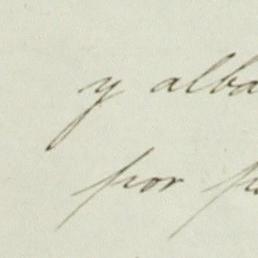 y alba
por p